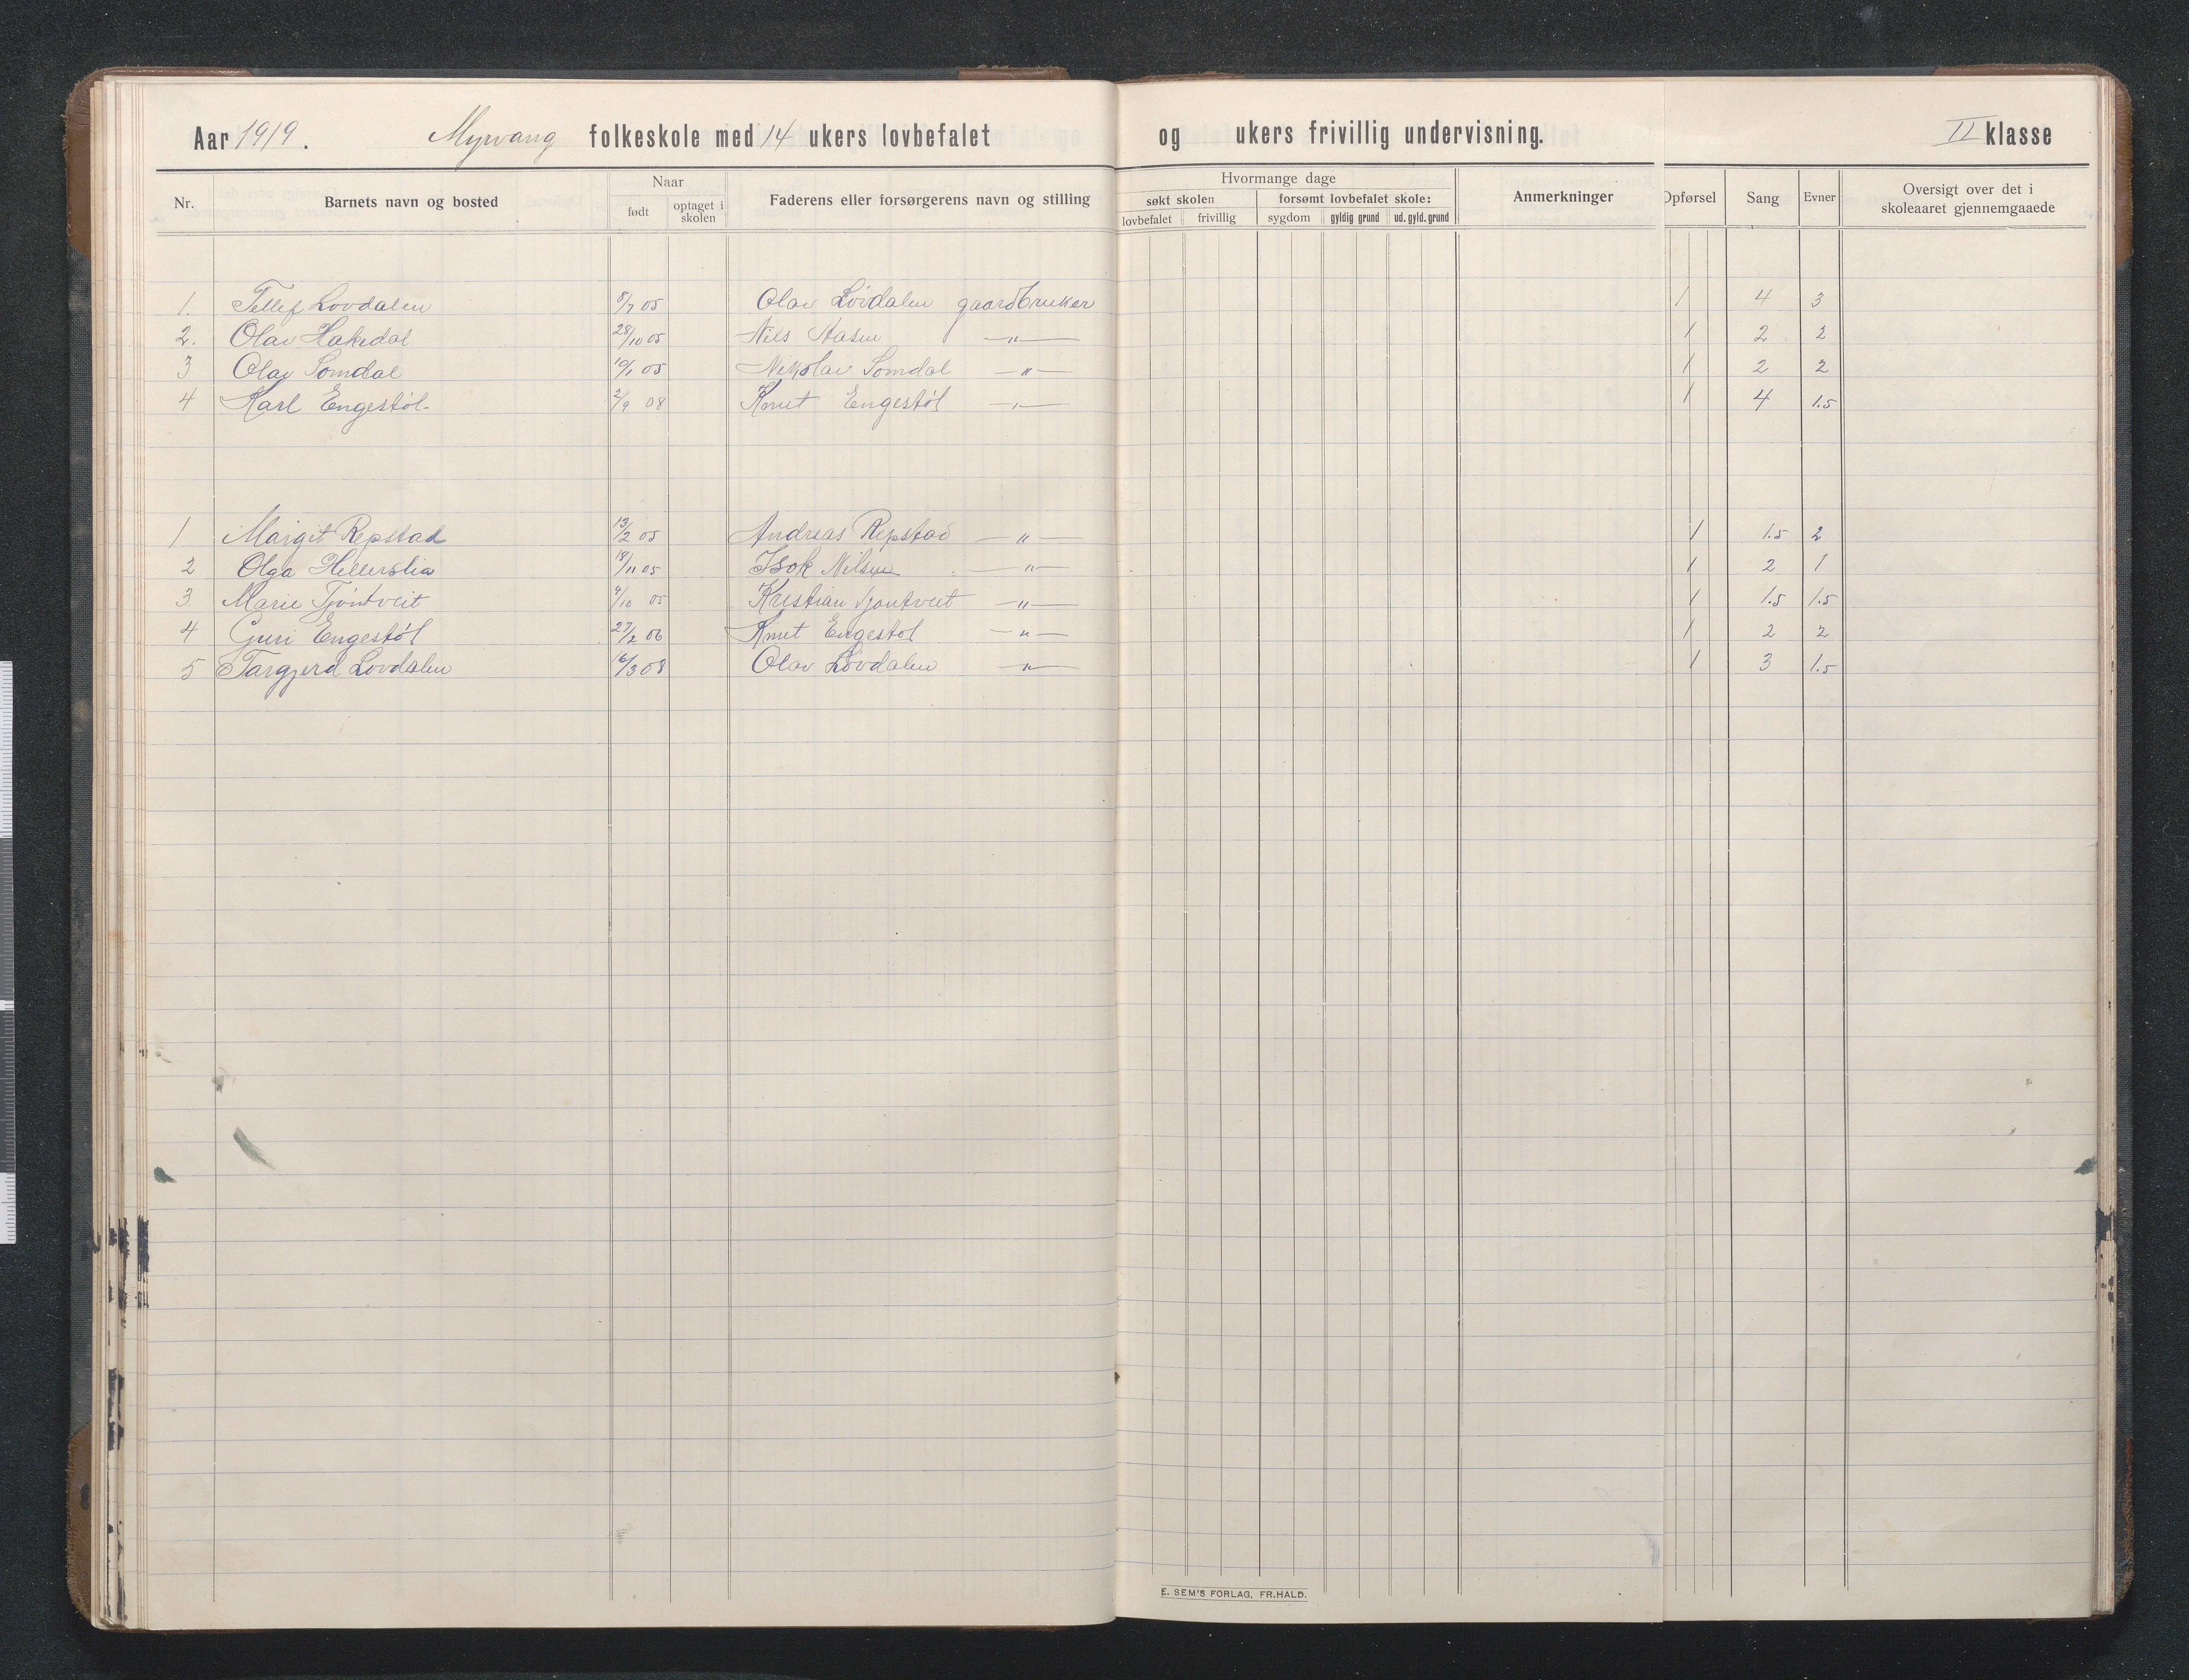 Aar 1919. Myrvang folkeskole med 14 ukers lovbefalet og ukers frivillig undervisning. II klasse
Nr. Barnets navn og bosted Naar født optaget i skolen Faderens eller forsørgerens navn og stilling Hvormange dage søkt skolen lovbefalet frivillig forsømt lovbefalet skole: sygdom gyldig grund ud. gyld. grund Anmerkninger Opførsel Sang Evner Oversigt over det i skoleaaret gjennemgaaede
1. Tellef Lovdalen 8/7 05 Olav Lövdalen gaardbruker 1 4 3
2. Olav Hakedal 28/10 05 Niels Aasen —„— 1 2 2
3 Olav Somdal 10/1 05 Nikolai Somdal —„— 1 2 2
4 Karl Engestöl 2/9 08 Knut Engestöl —„— 1 4 1.5
1 Margit Repstad 13/2 05 Andreas Repstad —„— 1 1.5 2
2 Olga Hellerslia 18/11 05 Isok Nilsen —„— 1 2 1
3 Marie Tjöntveit 4/10 05 Kristian Tjontveit —„— 1 1.5 1.5
4 Guri Engestöl 27/2 06 Knut Engestol —„— 1 2 2
5 Targjerd Lovdalen 16/3 08 Olav Lövdalen —„— 1 3 1.5
E. SEM'S FORLAG, FR.HALD.